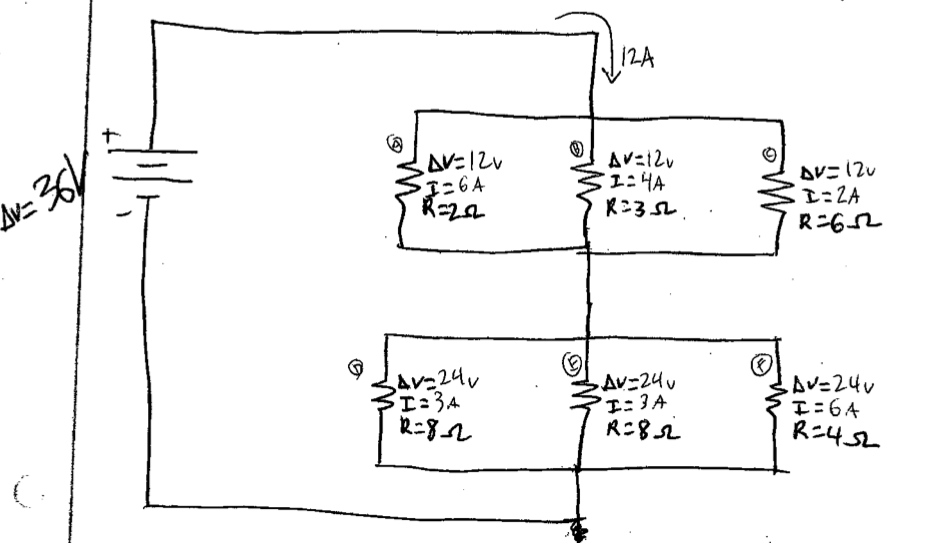 12A
+
ΔV=36V
-
Ⓐ
ΔV=12v
I=6A
R=2Ω
Ⓑ
ΔV=12v
I=4A
R=3Ω
Ⓒ
ΔV=12v
I=2A
R=6Ω
Ⓓ
ΔV=24v
I=3A
R=8Ω
Ⓔ
ΔV=24v
I=3A
R=8Ω
Ⓕ
ΔV=24v
I=6A
R=4Ω